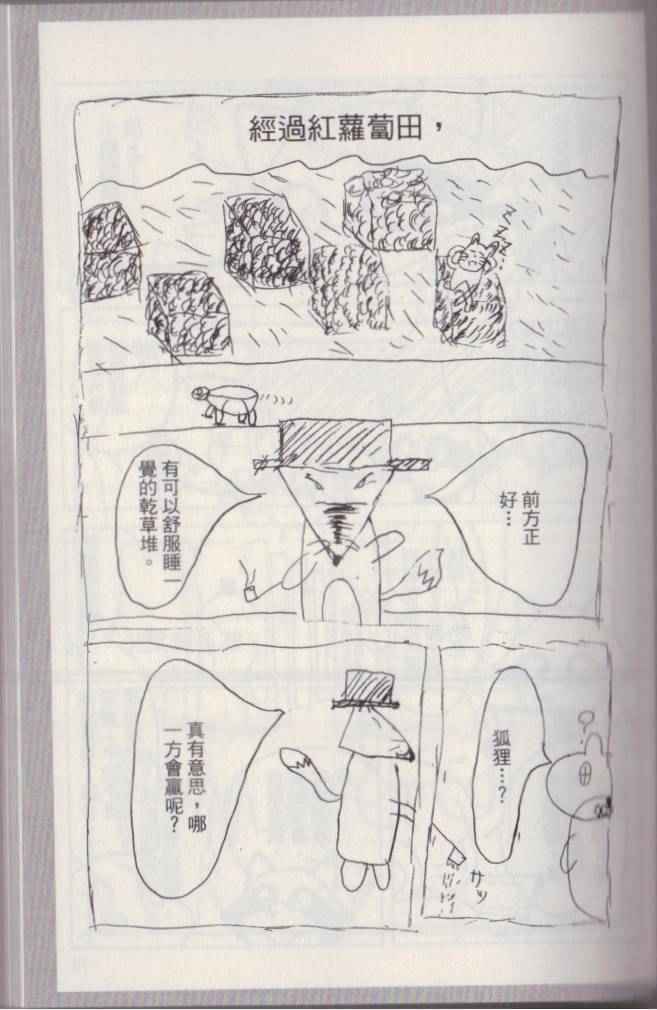 經過紅蘿蔔田，
ZZZZ...
前方正
好…
有可以舒服睡一
覺的乾草堆。
?
狐狸…？
サッ
真有意思，哪
一方會贏呢？